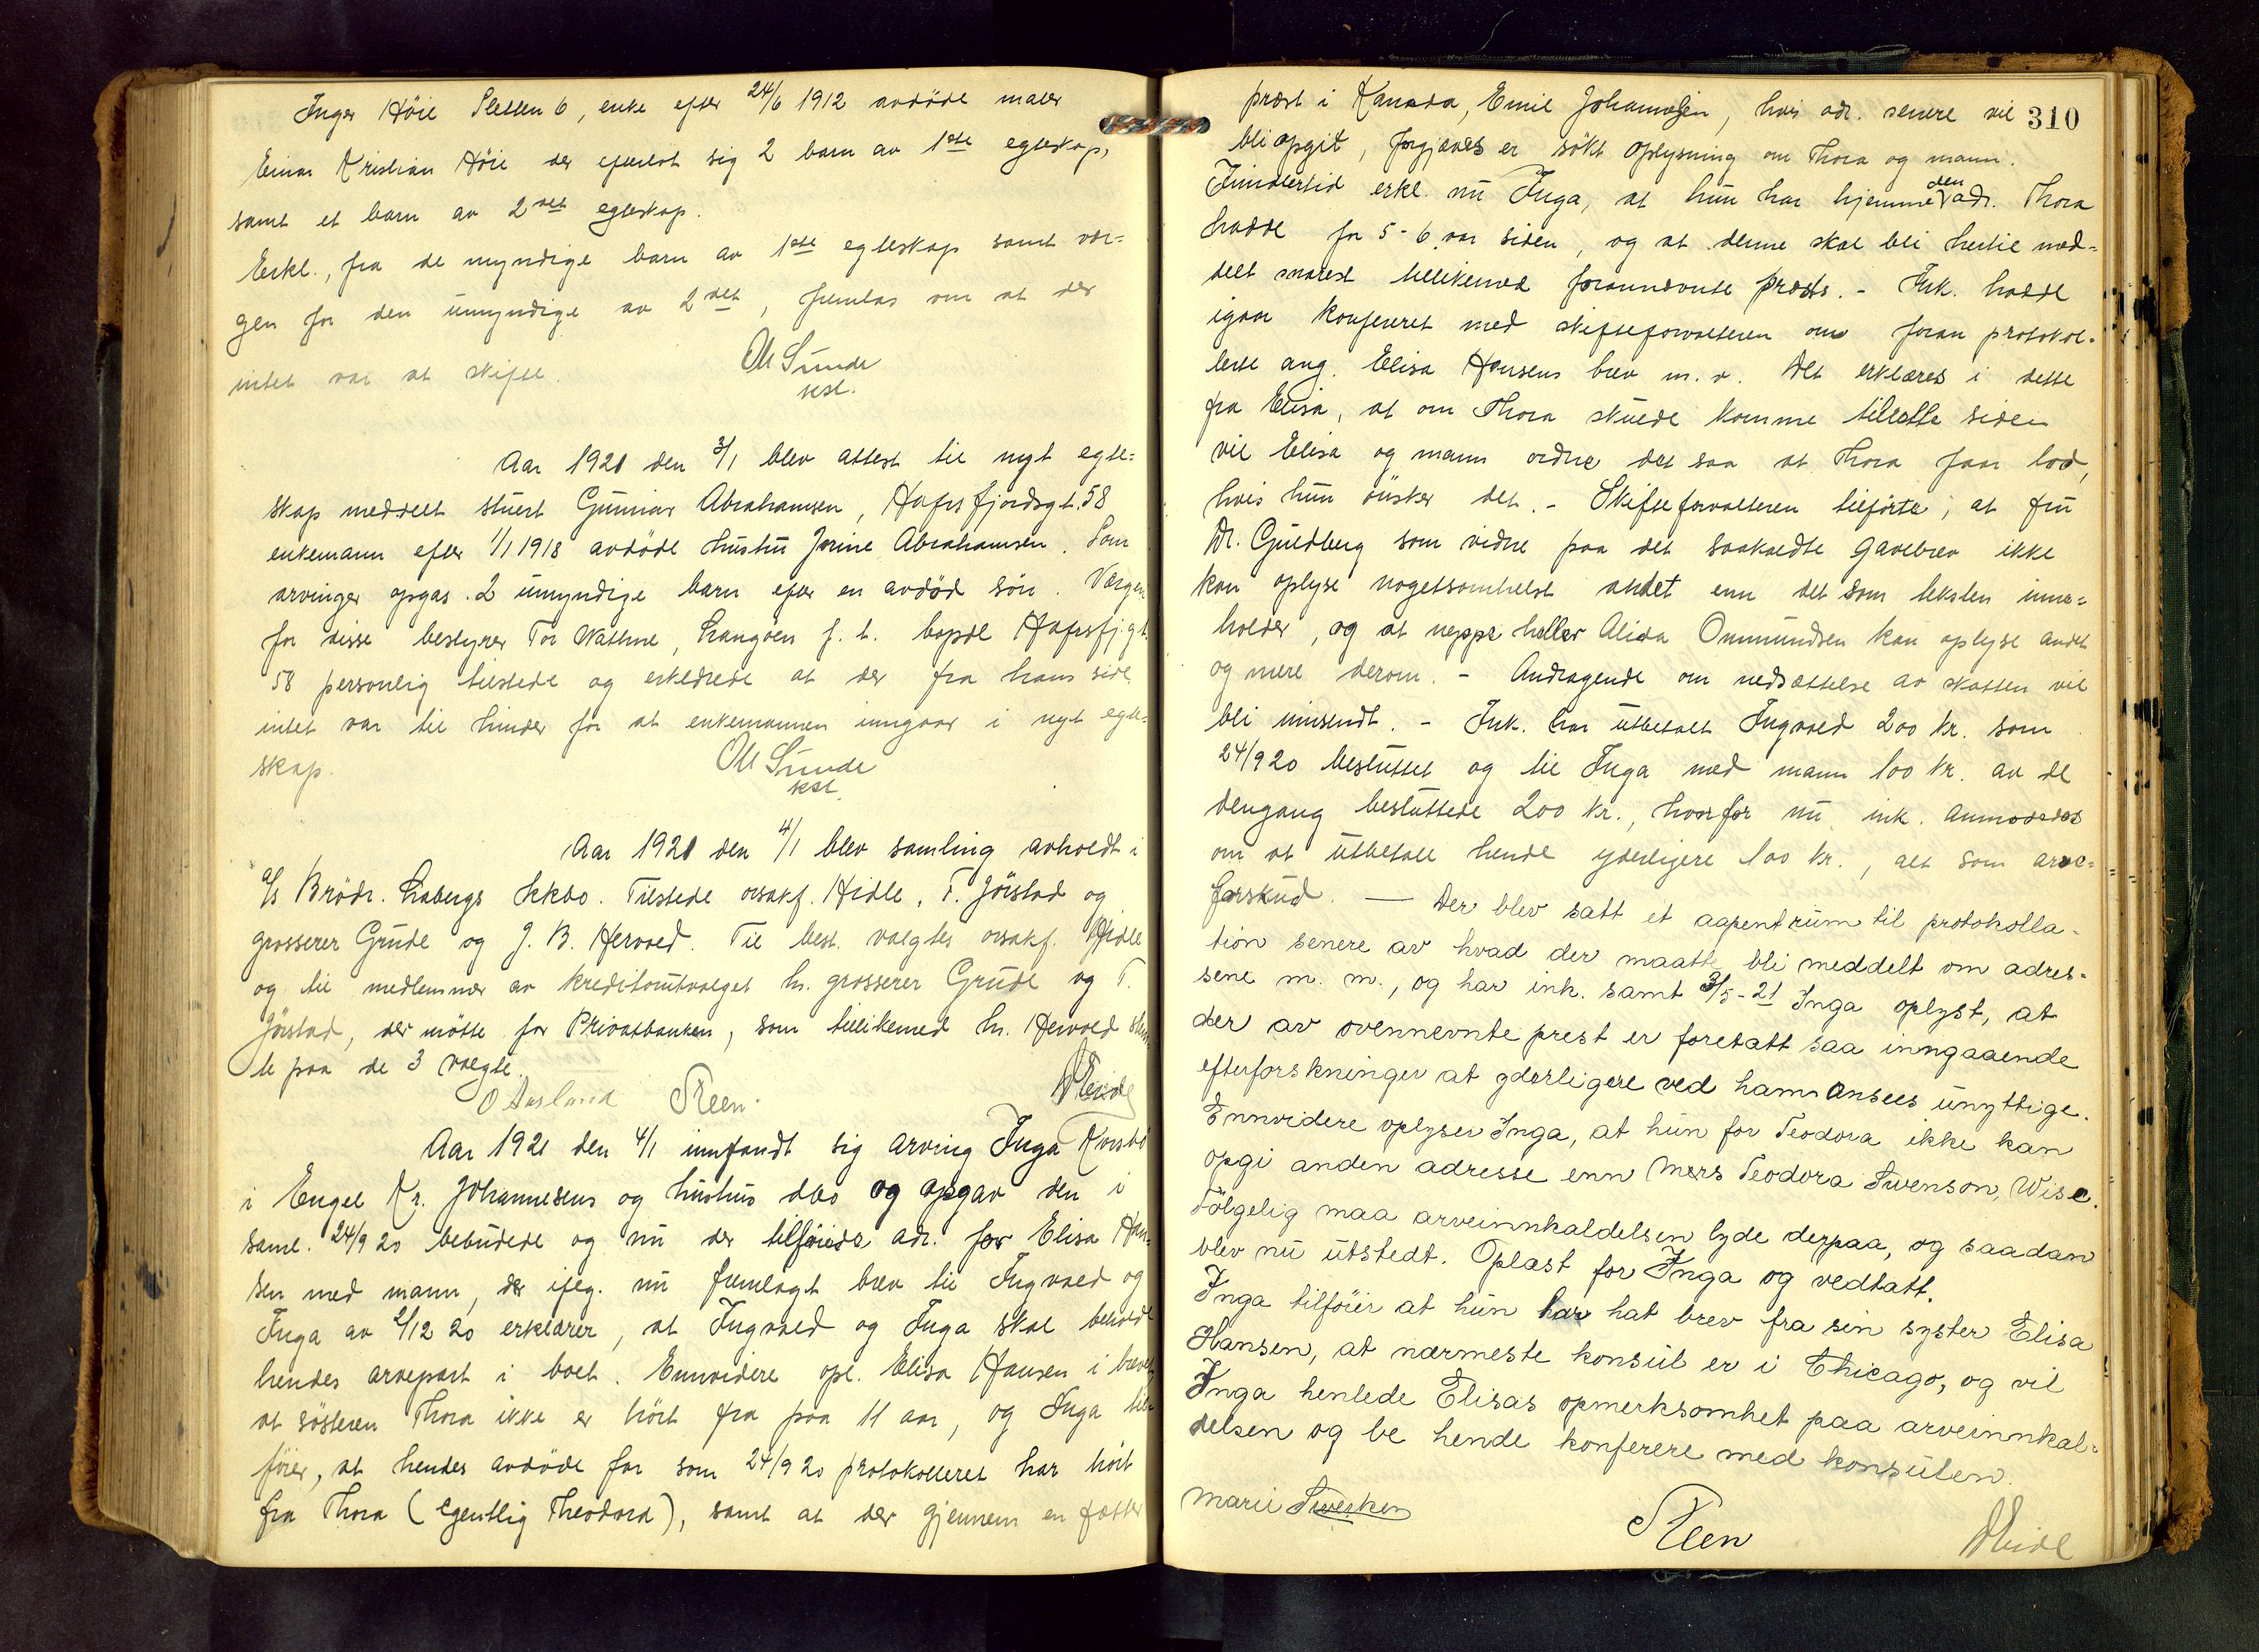 Inger Höie Sletten 6, enke efter 24/6 1912 avdöde maler
Einar Kristian Höie der efterlot sig 2 barn av 1ste egteskap,
samt et barn av 2det egteskap.
Erkl., fra de myndige barn av 1ste egteskap samt vær=
gen for den umyndige av 2det, fremlas om at der
intet var at skifte.
Ol Sunde
kst.
Aar 1921 den 3/1 blev attest til nyt egte=
skap meddelt stuert Gunnar Abrahamsen, Hafrsfjordsgt. 58
enkemann efter 1/1 1918 avdöde hustru Jorine Abrahamsen. Som
arvinger opgas 2 umyndige barn efter en avdöd sön. Vergen
for disse bestyrer Tor Wathne, Langöen f. t. bopæl Hafrsfj.gt.
58 personlig tilstede og erklærede at der fra hans side
intet var til hinder for at enkemannen inngaar i nyt egte=
skap.
Ol Sunde
kst.
Aar 1921 den 4/1 blev samling avholdt i
a/s Brödr. Liabergs kkbo. Tilstede orsakf. Hidle, T. Jörstad og
grosserer Grude og J. B. Hervold. Til best. valgtes orsakf. Hidle
og til medlemmer av kreditorutvalget hr. grosserer Grude og T.
Jörstad, der mötte for Privatbanken, som tillikemed hr. Hervold stem
te paa de 3 valgte.
O Aasland Steen.
Aar 1921 den 4/1 innfandt sig arving Inga
i Engel Kr. Johannesens og hustrus dbo og opgav den i
saml. 24/9 20 bebudede og nu der tilföiede adr. for Elisa Han=
sen med mann, der ifølg. nu fremlagt brev til Ingvald og
Inga av 2/12 20 erklærer, at Ingvald og Inga skal beholde
hendes arvepart i boet. Ennvidere opl. Elisa Hansen i brevet
at sösteren Thora ikke er hört fra paa 11 aar, og Inga til=
föier, at hendes avdöde far som 24/9 20 protokolleret har hört
fra Thora (egentlig Theodora), samt at der gjennem en fætter
310
prest i Kanada, Emil Johannesen, hvis adr. senere vil
bli opgit, forgjæves er sökt oplysning om Thora og mann.
Imidlertid erkl. nu Inga, at hun har hjemme den adr. Thora
hadde for 5-6 aar siden, og at denne skal bli hertil med=
delt snarest tillikemed forannevnte prests. - Ink. hadde
igaar konferert med skifteforvalteren om foran protokol=
lerte ang. Elisa Hansens brev m. v. Det erklæres i dette
fra Elisa, at om Thora skulde komme tilrette siden
vil Elisa og mann ordne det saa at Thora faar lod,
hvis hun önsker det. - Skifteforvalteren tilförte, at fru
Dr. Guldberg som vidne paa det saakaldte gavebrev ikke
kan oplyse nogetsomhelst andet enn det som teksten inne=
holder, og at neppe heller Alida Ommundsen kan oplyse andet
og mere derom. - Andragende om nedsættelse av skatten vil
bli innsendt. - Ink. har utbetalt Ingvald 200 kr. som
24/9 20 besluttet og til Inga med mann 100 kr. av de
dengang besluttede 200 kr., hvorfor nu ink. anmodedes
om at utbetale hende yderligere 100 kr., alt som arve=
forskud. — Der blev satt et aapent rum til protokolla-
tion senere av hvad der maatte bli meddelt om adres-
sene m. m., og har ink. samt 3/5-21 Inga oplyst, at
der av ovennevnte prest er foretatt saa inngaaende
efterforskninger at yderligere ved ham ansees unyttige.
Ennvidere oplyser Inga, at hun for Teodora ikke kan
opgi anden adresse enn Mers Teodora Swenson, Wise.
Fölgelig maa arveinnkaldelsen lyde derpaa, og saadan
blev nu utstedt. Oplæst for Inga og vedtatt.
Inga tilföier at hun har hat brev fra sin syster Elisa
Hansen, at nærmeste konsul er i Chicago, og vil
Inga henlede Elisas opmerksomhet paa arveinnkal=
delsen og be hende konferere med konsulen.
Marie
Steen